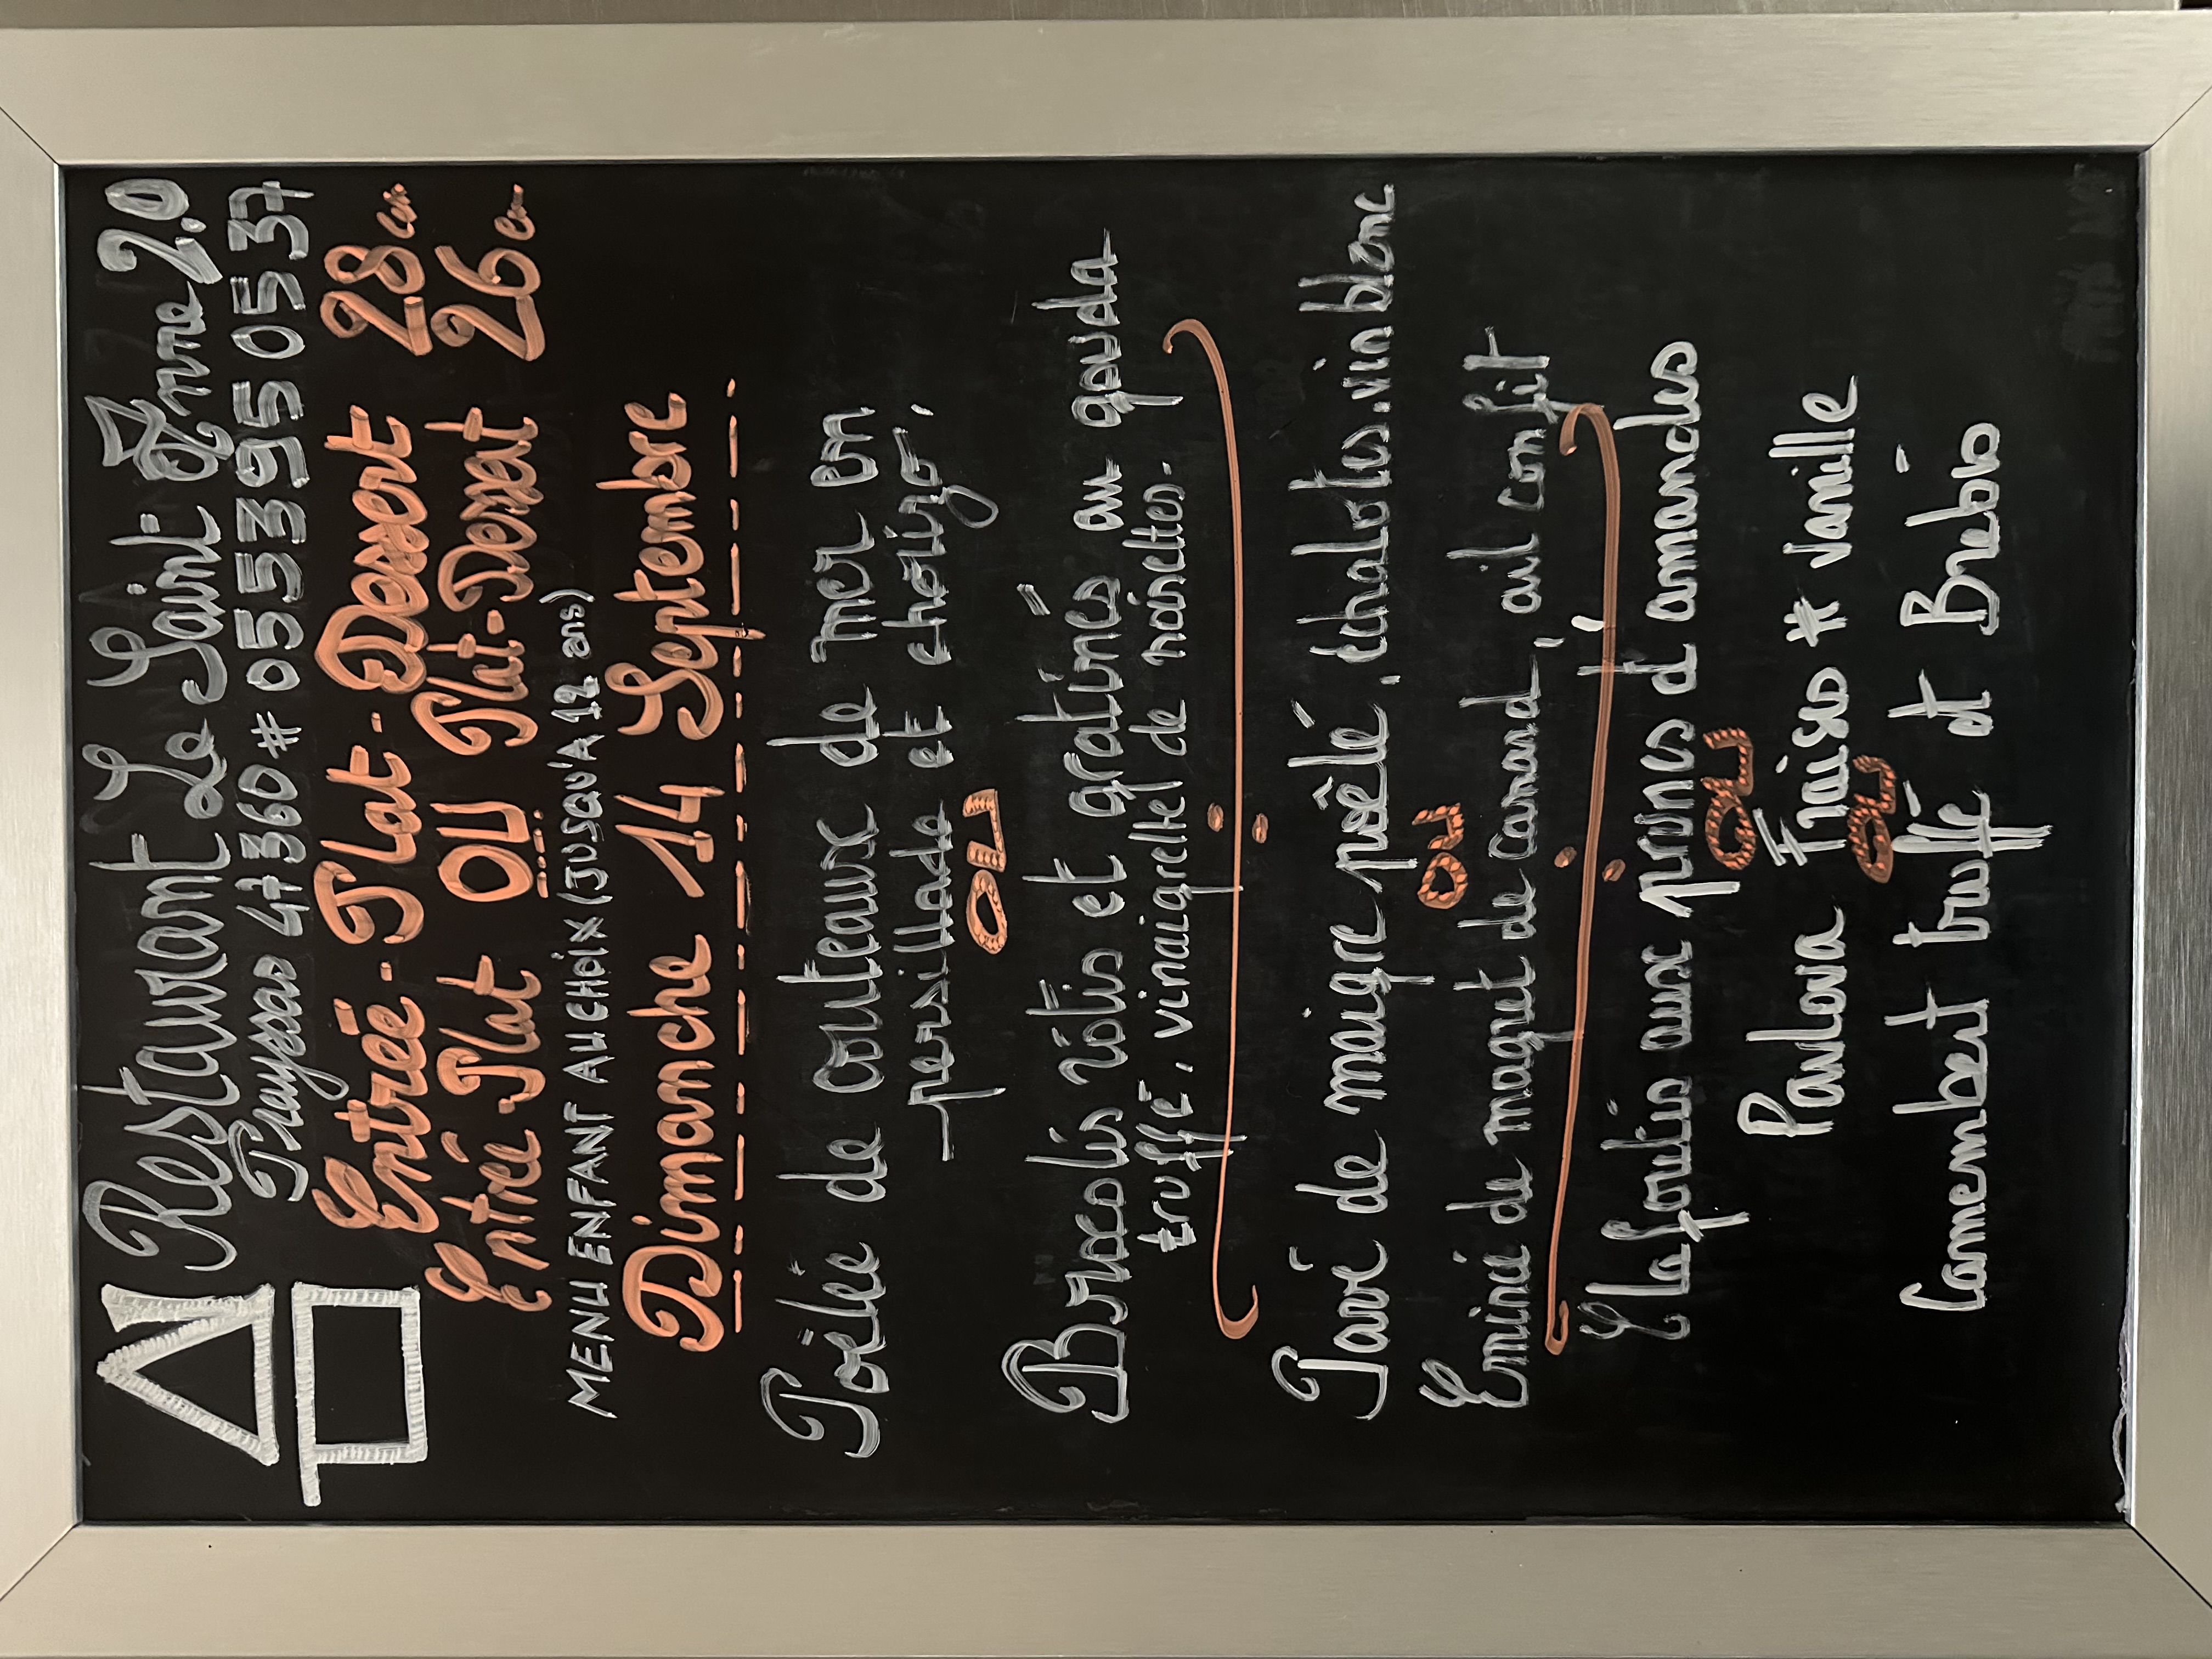 Restaurant Le Saint Of Mme 2.0
Prayssas 47360 # 0553950537
Entrée-Plat-Dessert 28
Entrée.Plat OU Plat-Dessert 26
MENU ENFANT AU CHOIX (JUSQU'A 12 ans)
Dimanche 14 Septembre
Poêlée de couteaux de mer en
persillade et chorizo,
OU
Brocolis rôtis et gratinés au gouda
truffé, vinaigrette de noisettes.
Pavé de maigre poêlé, échalotes.vin blanc
OU
Emincé de magret de canard, ail confit
Clafoutis aux prunes et amandes
OU
Pavlova Fraise # Vanille
OU
Camembert truffé et Brebis